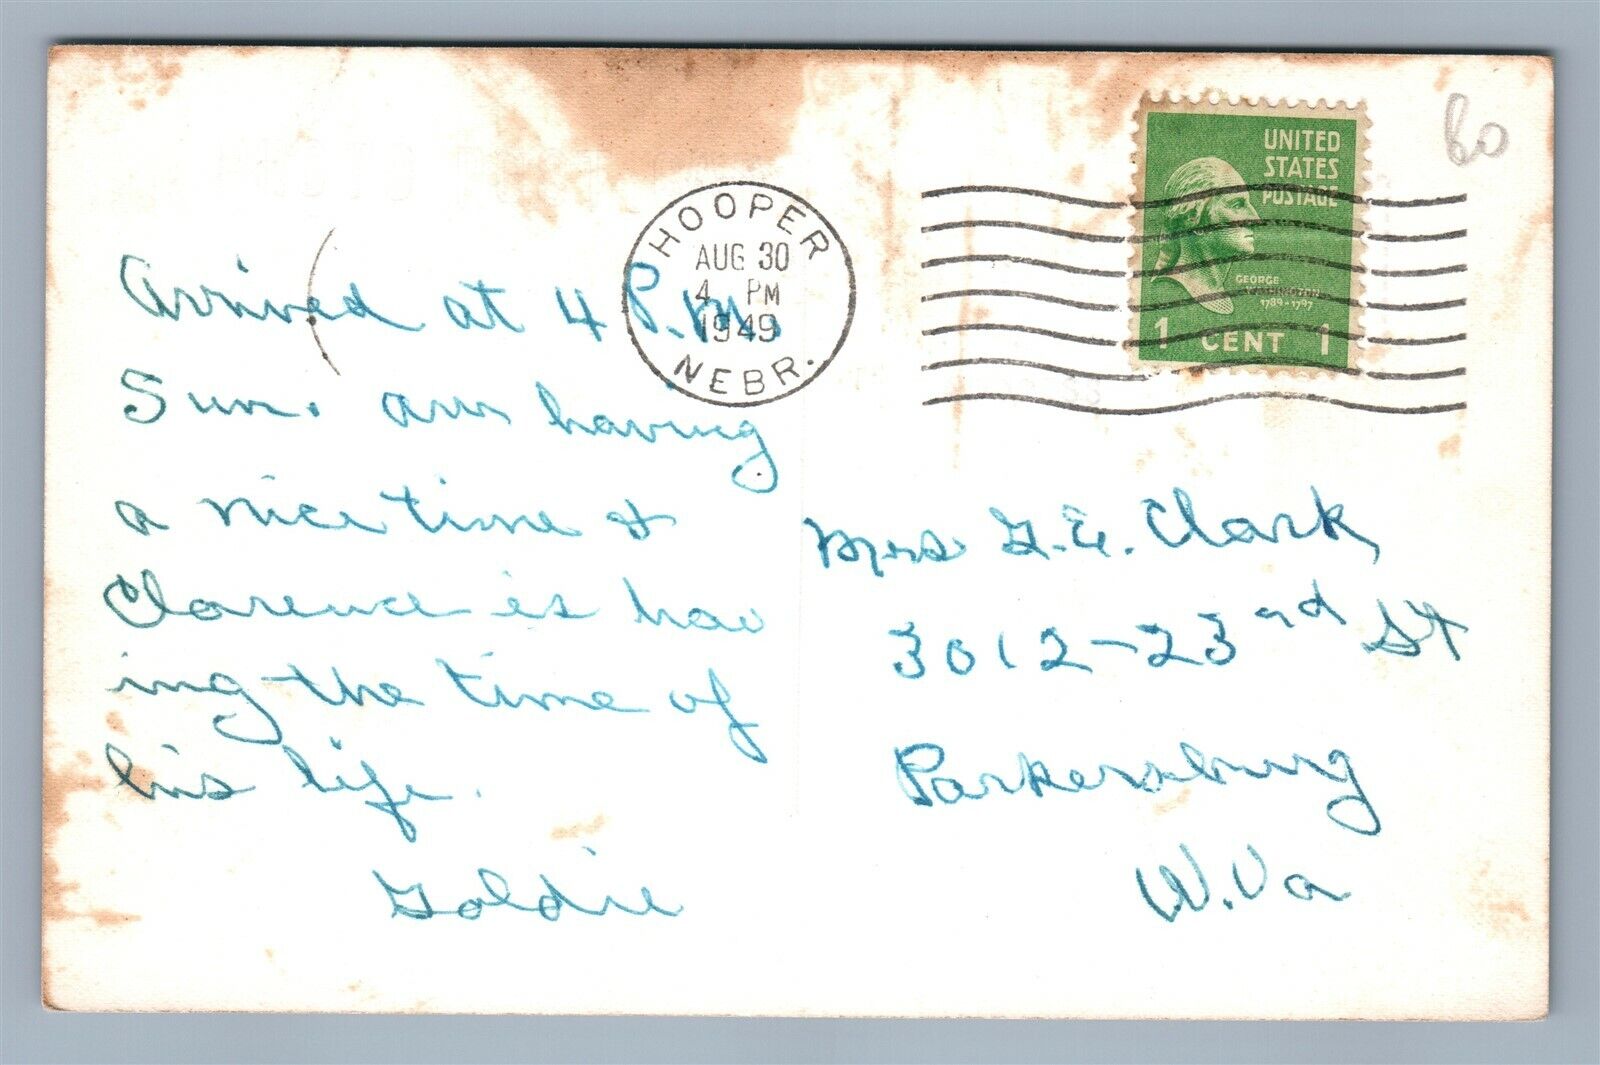 Arrived at 4 P.M.
Sun. am having
a nice time &
Clarence is hav
ing the time of
his life.
Goldie
HOOPER
AUG 30
4 PM
1949
NEBR.
UNITED
STATES
POSTAGE
GEORGE
WASHINGTON
1789-1797
1 CENT 1
60
Mrs G.E. Clark,
3012-23rd St
Parkersburg
W.Va